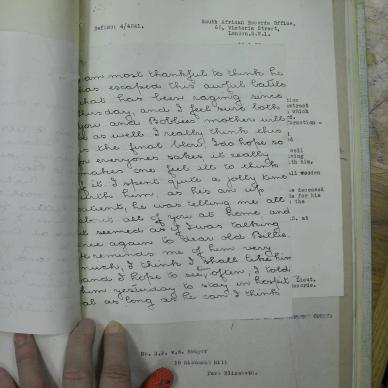 Ref:No: 4/4241.
South African Records Office,
45, Victoria Street,
London.S.W.1.
am most thankful to think he
has escaped this awful battle
that has been raging since
thursday, and I feel sure both
you and Bobbees mother will
be as well. I really think this
is the final blow, I do hope so
for everyones sakes it really
makes one feel ill to think
of it. I spent quite a jolly time
with him, as hes an up
patient, he was telling me all
about all of you at home and
it seemed as if I was talking
once again to dear old Billie.
He reminds me of him very
much, I think I shall like him
and I hope to see, often, I told
him yesterday to stay in hospit
al as long as he can I think
which
with him.
wooden
deceased
for his
the
at
Lieut.
Port Elizabeth.